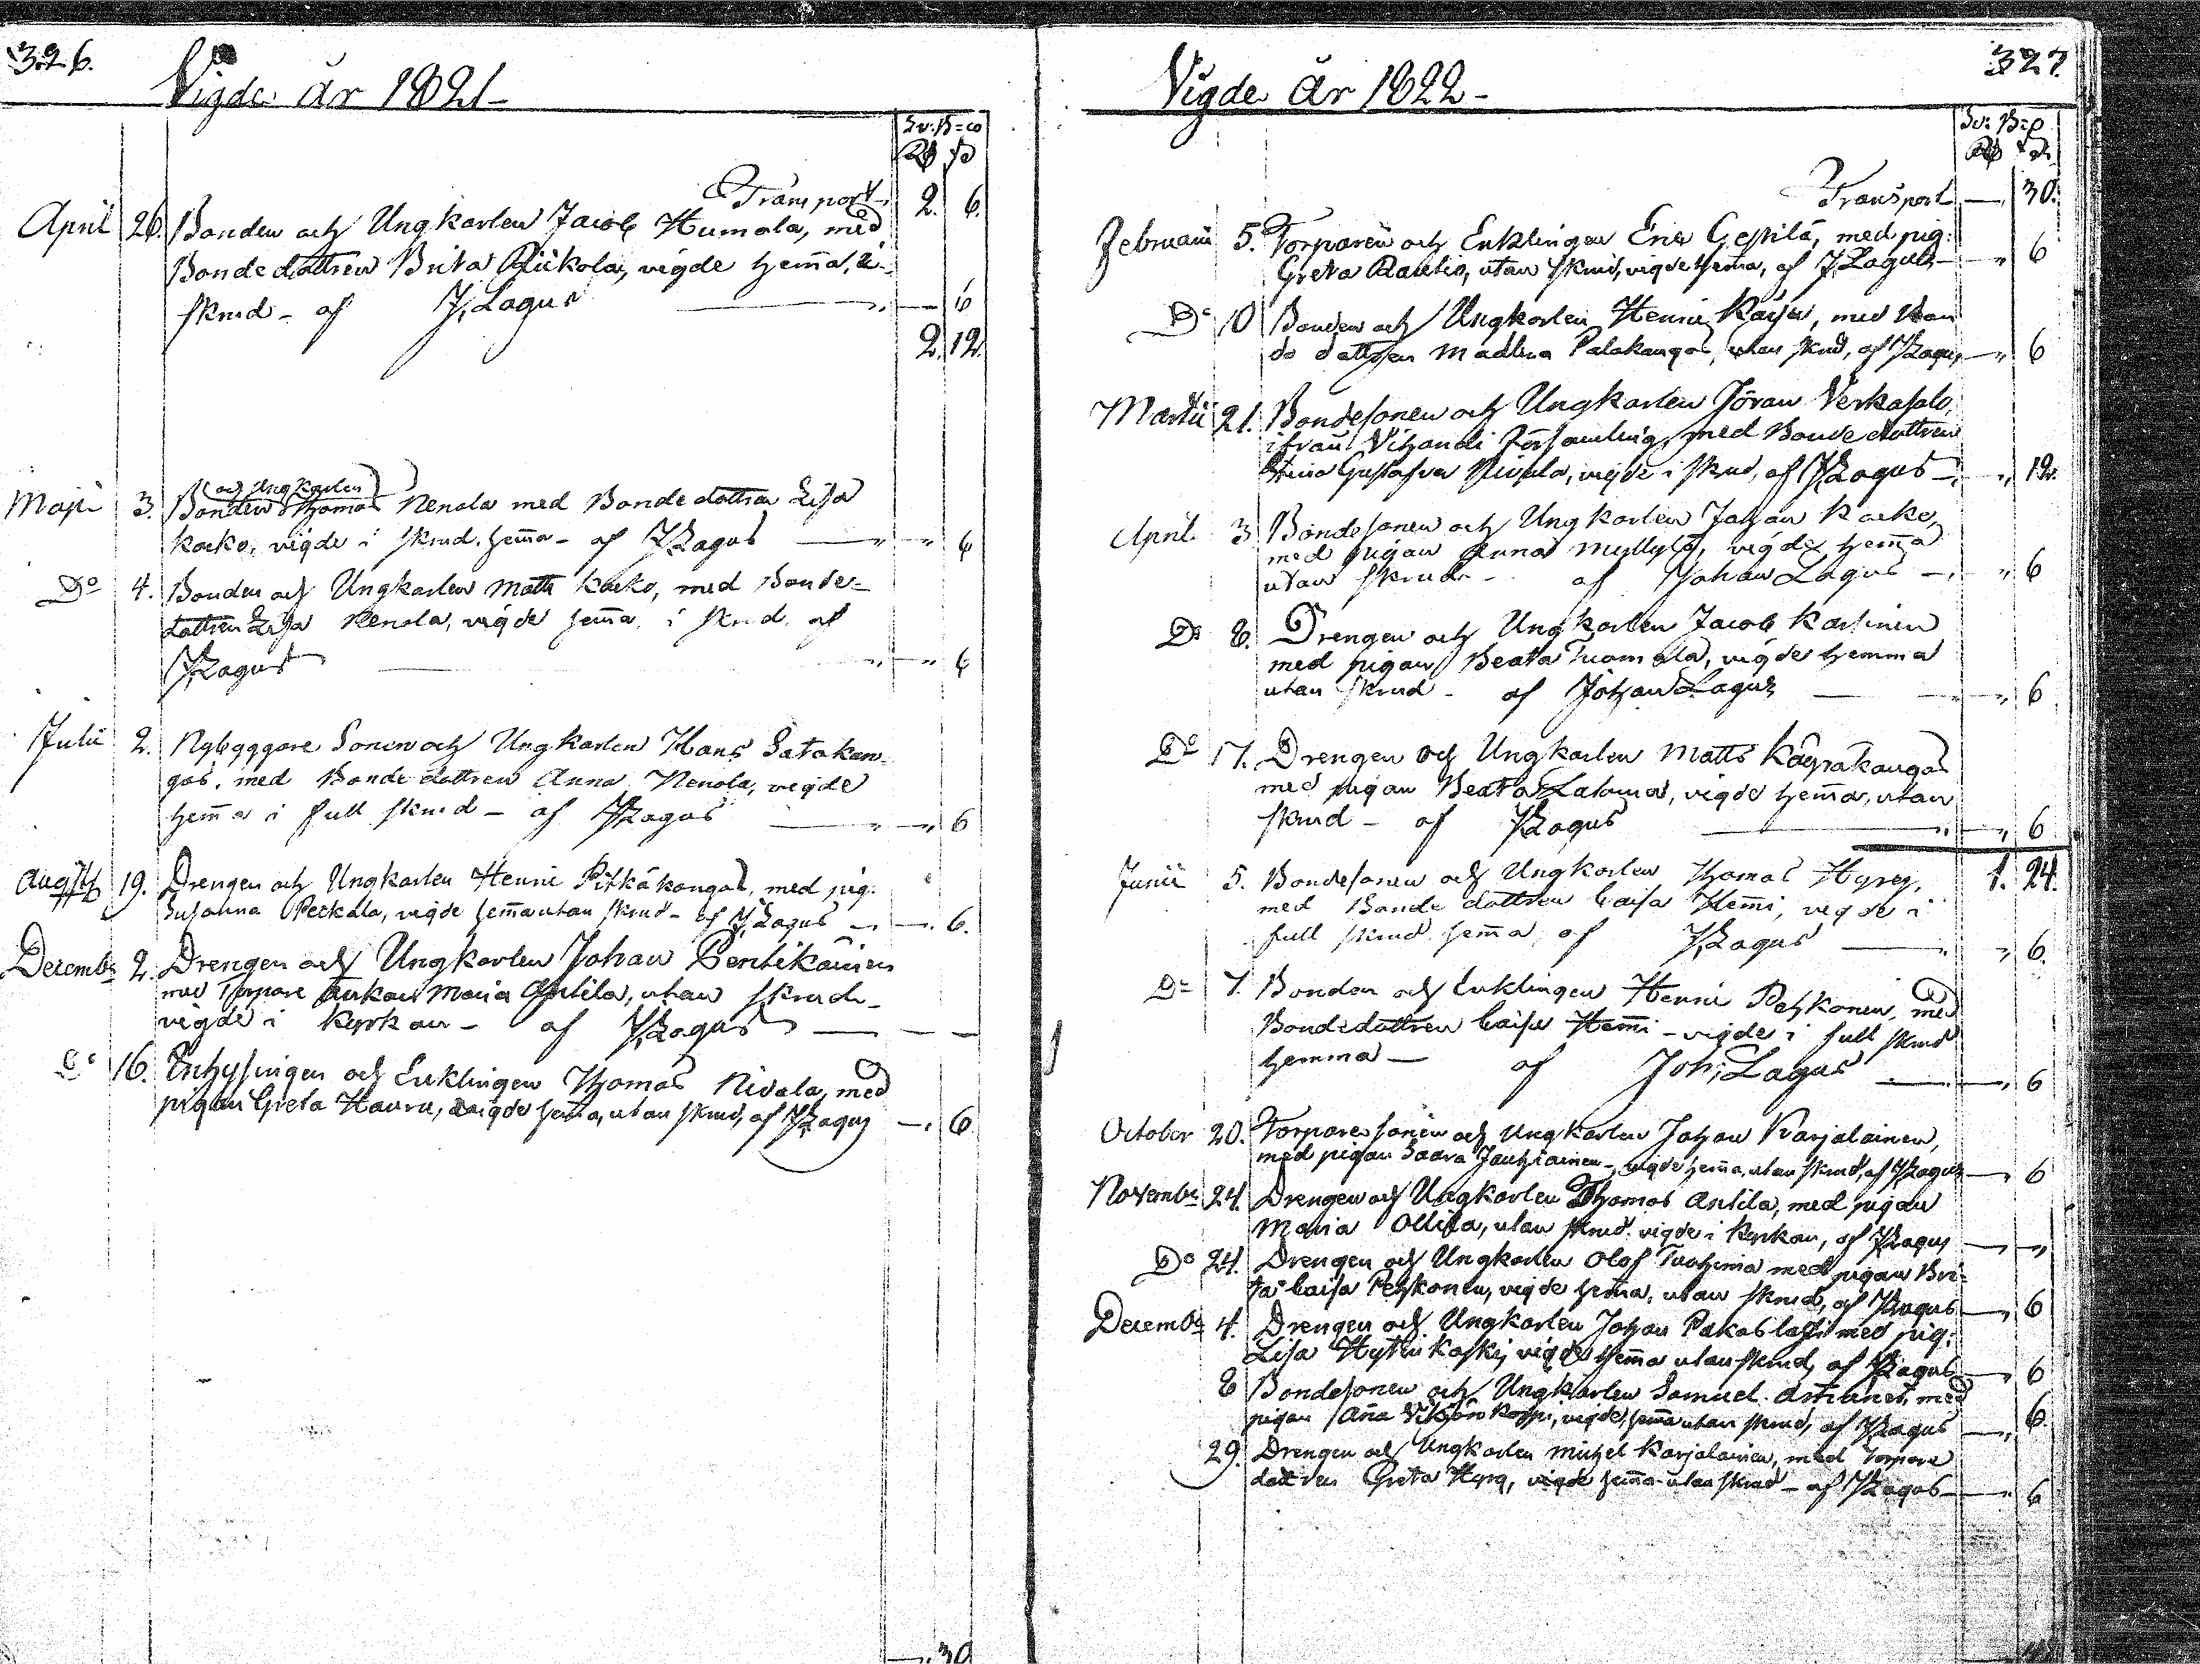 326.
Vigde år 1821-
Sv: B=co
Rd s
Transport 2. 6.
April 26. Bonden och Ungkarlen Jacob Humola, med
Bondedottren Brita Rickola, vigde hem̄a, u-
skrud - af J, Lagus — 6
2. 12.
och Ungkarlen
Maji 3. Bonden Thomas Nenola med Bondedottren Lisa
Karko, vigde i skrud. hem̄a - af J Lagus — 6
Do 4. Bonden och Ungkarlen Matts Karko, med Bonde-
dottren Lisa Nenola, vigde hem̄a, i skrud. af
J Lagus — 6
Julii 2. Nybyggare Sonen och Ungkarlen Hans Satakan-
gas, med Bonde dottren Anna Nenola, vigde
hem̄a i full skrud - af J Lagus — 6
Augusti 19. Drengen och Ungkarlen Henric Pitkäkangas, med pig:
Susanna Peckala, vigde hem̄a utan skrud - af J, Lagus — 6.
Decembr 2. Drengen och Ungkarlen Johan Pentikäinen
med Torpare Enkan Maria Anttila, utan skrud-
vigde i Kyrkan - af J, Lagus — —
Do 16. Inhysingen och Enklingen Thomas Nivala, med
pigan Greta Hauru, vigde hem̄a, utan skrud, af J Lagus — 6
30
327.
Vigde år 1822-
Sv: B:o
Rd s
Transport — 30.
Februarii 5. Torparen och Enklingen Eric Seppilä, med pig:
Greta Rautio, utan skrud, vigde hem̄a, af J, Lagus — 6
Do 10 Bonden och Ungkarlen Henric Räisä, med Bon
de dottren Madlena Palokangas, utan skrud, af J Lagus — 6
Martii 21. Bondesonen och Ungkarlen Jöran Verkasalo,
ifrån Vihandi Församling, med Bonde dottren
Gustafva Nivala, vigde i skrud, af J Lagus — 12.
April 3 Bondesonen och Ungkarlen Johan Karko,
med pigan Anna Myllylä, vigde hem̄a
utan skrud - af Johan Lagus — 6
Do 8. Drengen och Ungkarlen Jacob Karsinen
med pigan Beata Tuomala, vigde hemma
utan skrud - af Johan Lagus — 6
Do 17. Drengen och Ungkarlen Matts Käyräkangas
med pigan Beata Laluma, vigde hem̄a, utan
skrud - af J Lagus — 6
1. 24.
Junii 5. Bondesonen och Ungkarlen Thomas Hyry,
med Bonde dottren Caisa Hem̄i, vigde i
full skrud hem̄a, af J, Lagus — 6.
Do 7. Bonden och Enklingen Henric Pehkonen, med
Bondedottren Caisa Hem̄i - vigde i full skrud
hemma - af Joh, Lagus — 6
October 20. Torpare sonen och Ungkarlen Johan Karjalainen,
med pigan Saara Jauhiainen - vigde hem̄a, utan skrud, af J Lagus — 6
Novembr 24. Drengen och Ungkarlen Thomas Antila, med pigan
Maria Ollila, utan skrud. vigde i Kyrkan, af J Lagus — —
Do 24. Drengen och Ungkarlen Olof Tuohima med pigan Bri-
ta Caisa Pehkonen, vigde hem̄a, utan skrud, af J Lagus — 6
Decembr 4. Drengen och Ungkarlen Johan Pakaslahti med pig:
Lisa Hyttinkoski, vigde hem̄a utan skrud, af J Lagus — 6
8 Bondesonen och Ungkarlen Samuel, med
pigan An̄a, vigde hem̄a utan skrud, af J Lagus — 6.
29. Drengen och Ungkarlen Michel Karjalainen, med Torpare
dottren Greta Hyry, vigde hem̄a utan skrud - af J Lagus — 6